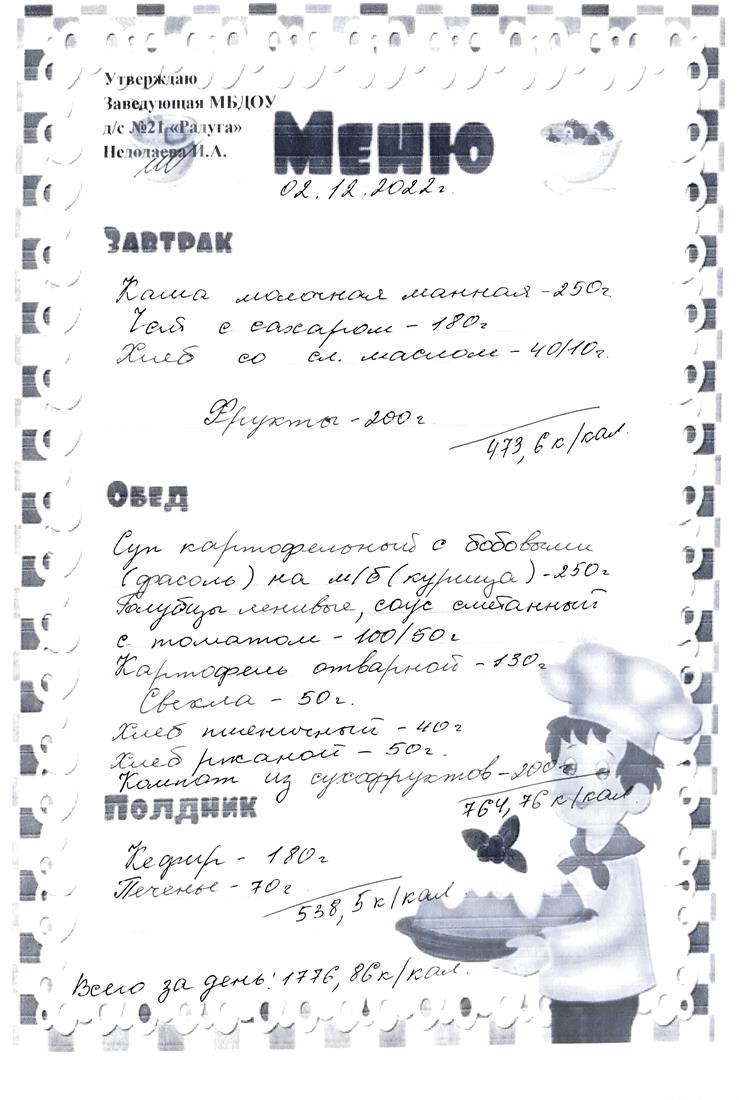 Утверждаю
Заведующая МБДОУ
д/с №21 «Радуга»
Недодаева И.А.
Меню
02.12.2022г.
Завтрак
Каша молочная манная - 250г
Чай с сахаром - 180г
Хлеб со сл. маслом - 40/10г.
Фрукты - 200г.
473,6 к/кал.
Обед
Суп картофельный с бобовыми
(фасоль) на м/б (курица) - 250г
Голубцы ленивые, соус сметанный
с томатом - 100/50г
Картофель отварной - 130г
Свекла - 50г.
Хлеб пшеничный - 40г
Хлеб ржаной - 50г.
Компот из сухофруктов - 200г
764,76 к/кал.
Полдник
Кефир - 180г
Печенье - 70г
538,5 к/кал
Всего за день: 1776,86 к/кал.